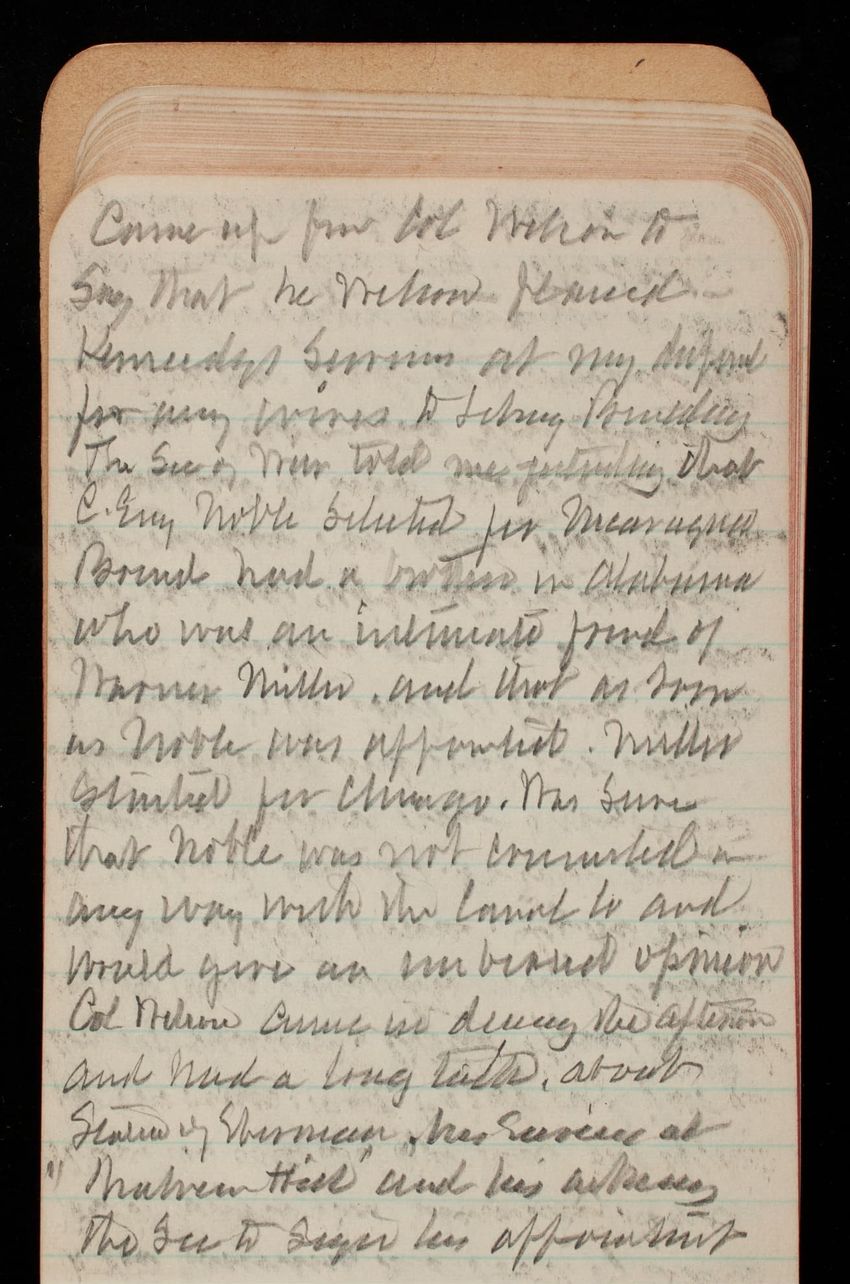 Came up from Col Wilson to
Say that he Wilson placed
Kennedys Services at my disposal
for any wires to
The Sec of War told me yesterday that
C. Guy Noble Selected for Nicaragua
Board had a brother in Alabama
who was an intimate friend of
Warner Miller, and that as soon
as Noble was appointed. Miller
Started for Chicago. Was Sure
that Noble was not connected in
any way with the Canal Co and
would give an unbiased opinion
Col Wilson came in during the afternoon
and had a long talk, about
Statue of Sherman, his Services at
"Malvern Hill" and his asking
The Sec to Sign his appointment